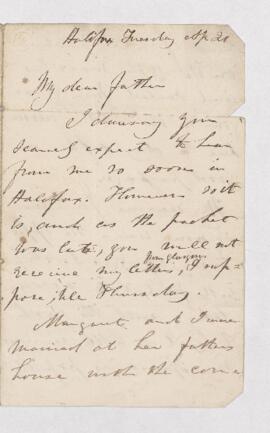 Halifax Tuesday Ap 21
My dear father
I daresay you
scarcely expect to hear
from me so soon in
Halifax. However so it
is, and as the packet
was late, you will not
receive my letters, from glasgow, I sup=
pose, till Thursday.
Margaret and I were
married at her fathers
house with the